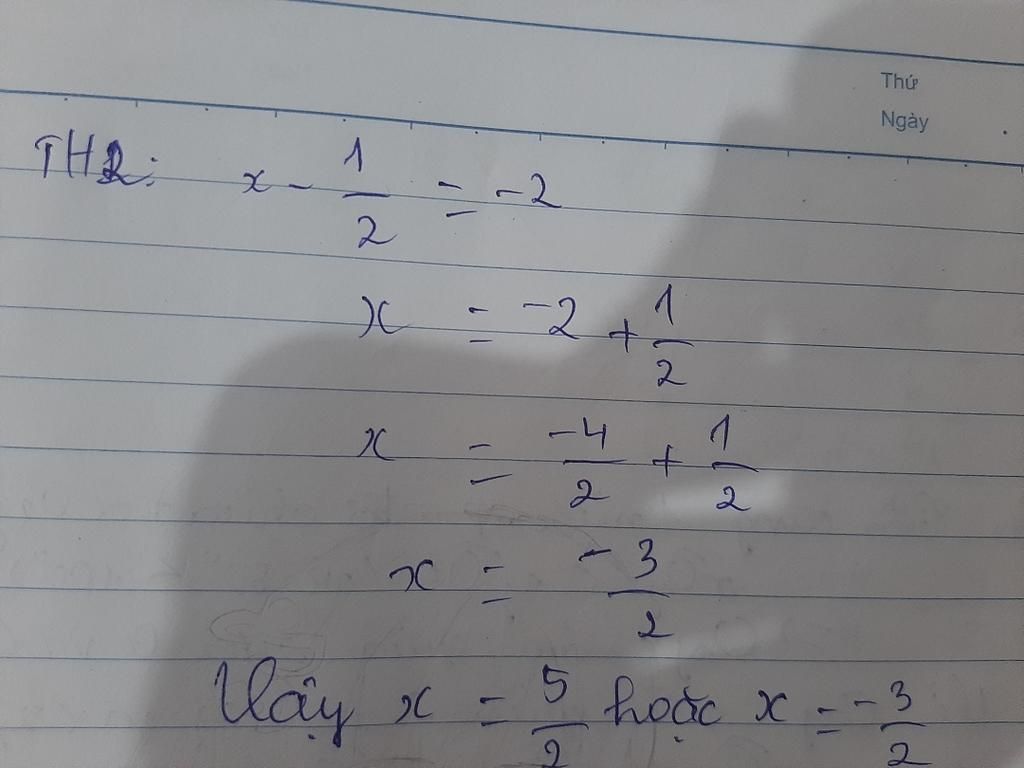 Thứ
Ngày
TH2: x - 1/2 = -2
x = -2 + 1/2
x = -4/2 + 1/2
x = -3/2
Vậy x = 5/2 hoặc x = -3/2